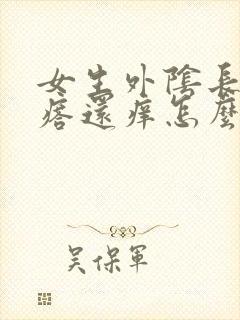 女生外陰長
瘩還痒怎麼
吴保軍